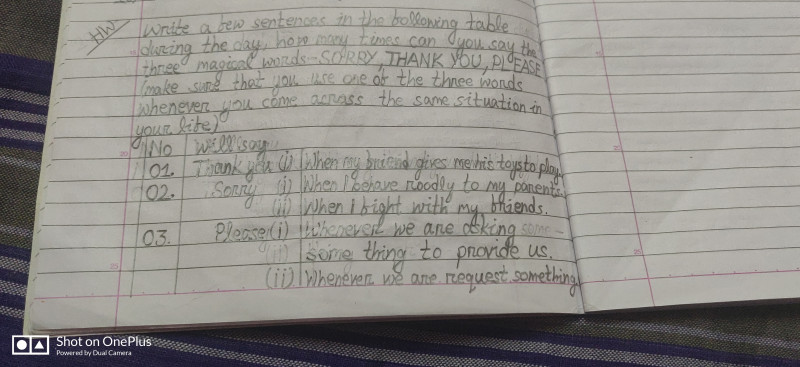 HW
Write a few sentences in the following table
during the day, how many times can you say the
three magical words - SORRY, THANK YOU, PLEASE
(make sure that you use one of the three words
whenever you come across the same situation in
your life)
No Will say
01. Thank you (i) When my friend gives me his toys to play.
02. Sorry (i) When I behave roodly to my parents.
(ii) When I fight with my friends.
03. Please (i) Whenever we are asking some
some thing to provide us.
(ii) Whenever we are request something
Shot on OnePlus
Powered by Dual Camera